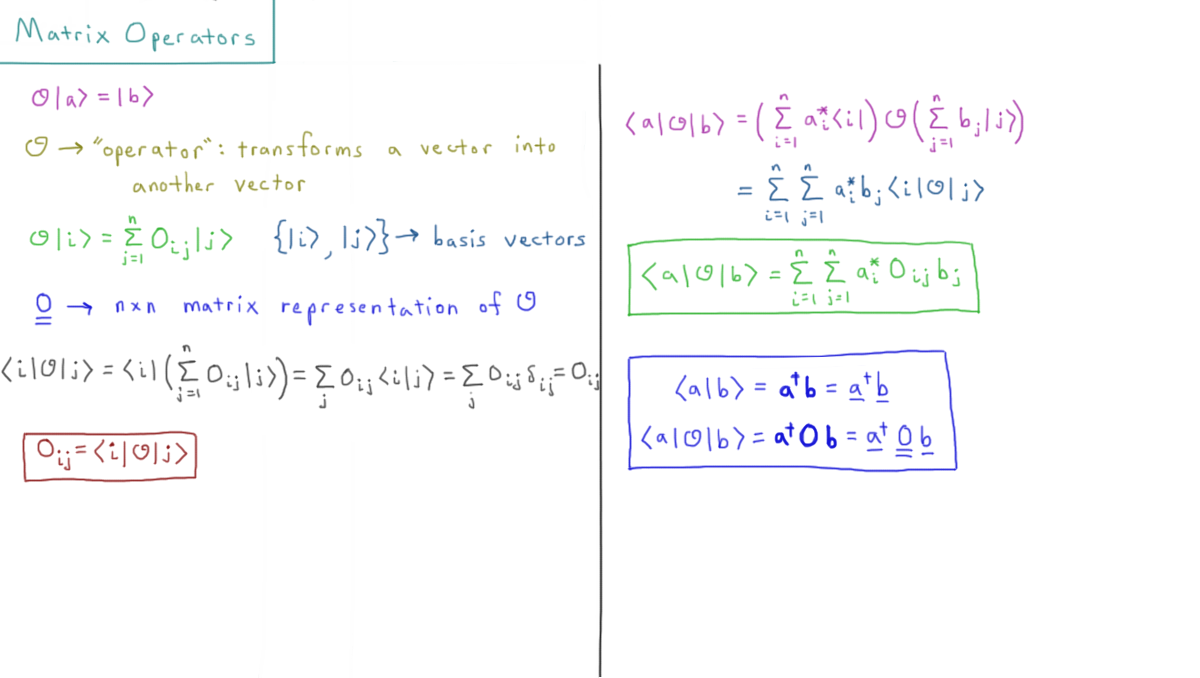 Matrix Operators
𝒪|a⟩ = |b⟩
𝒪 → "operator": transforms a vector into
another vector
𝒪|i⟩ = ∑_{j=1}^{n} O_{ij}|j⟩ {|i⟩, |j⟩} → basis vectors
O̳ → n×n matrix representation of 𝒪
⟨i|𝒪|j⟩ = ⟨i|(∑_{j=1}^{n} O_{ij}|j⟩) = ∑_{j} O_{ij}⟨i|j⟩ = ∑_{j} O_{ij}δ_{ij} = O_{ij}
O_{ij} = ⟨i|𝒪|j⟩
⟨a|𝒪|b⟩ = (∑_{i=1}^{n} a_i^*⟨i|) 𝒪 (∑_{j=1}^{n} b_j|j⟩)
= ∑_{i=1}^{n} ∑_{j=1}^{n} a_i^* b_j ⟨i|𝒪|j⟩
⟨a|𝒪|b⟩ = ∑_{i=1}^{n} ∑_{j=1}^{n} a_i^* O_{ij} b_j
⟨a|b⟩ = 𝐚†𝐛 = a̲† b̲
⟨a|𝒪|b⟩ = 𝐚†𝐎𝐛 = a̲† O̳ b̲